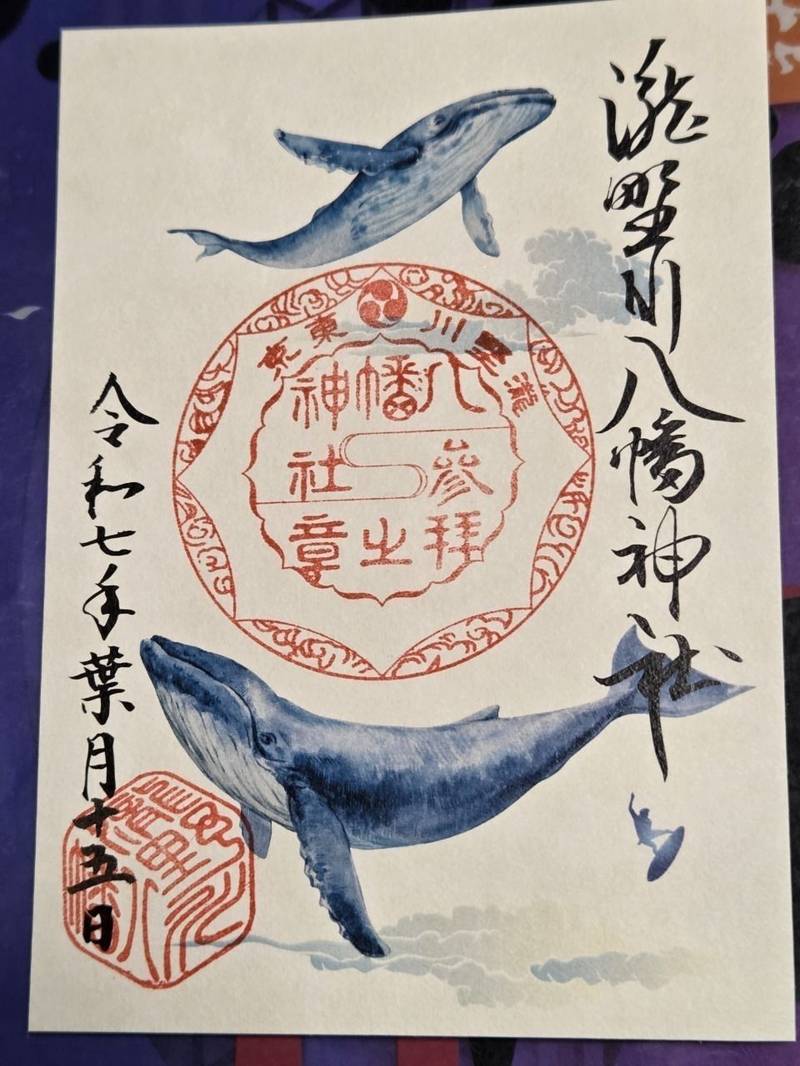 瀧野川八幡神社
東京
瀧野川
八幡
神社
参拝
之章
令和七年葉月十五日